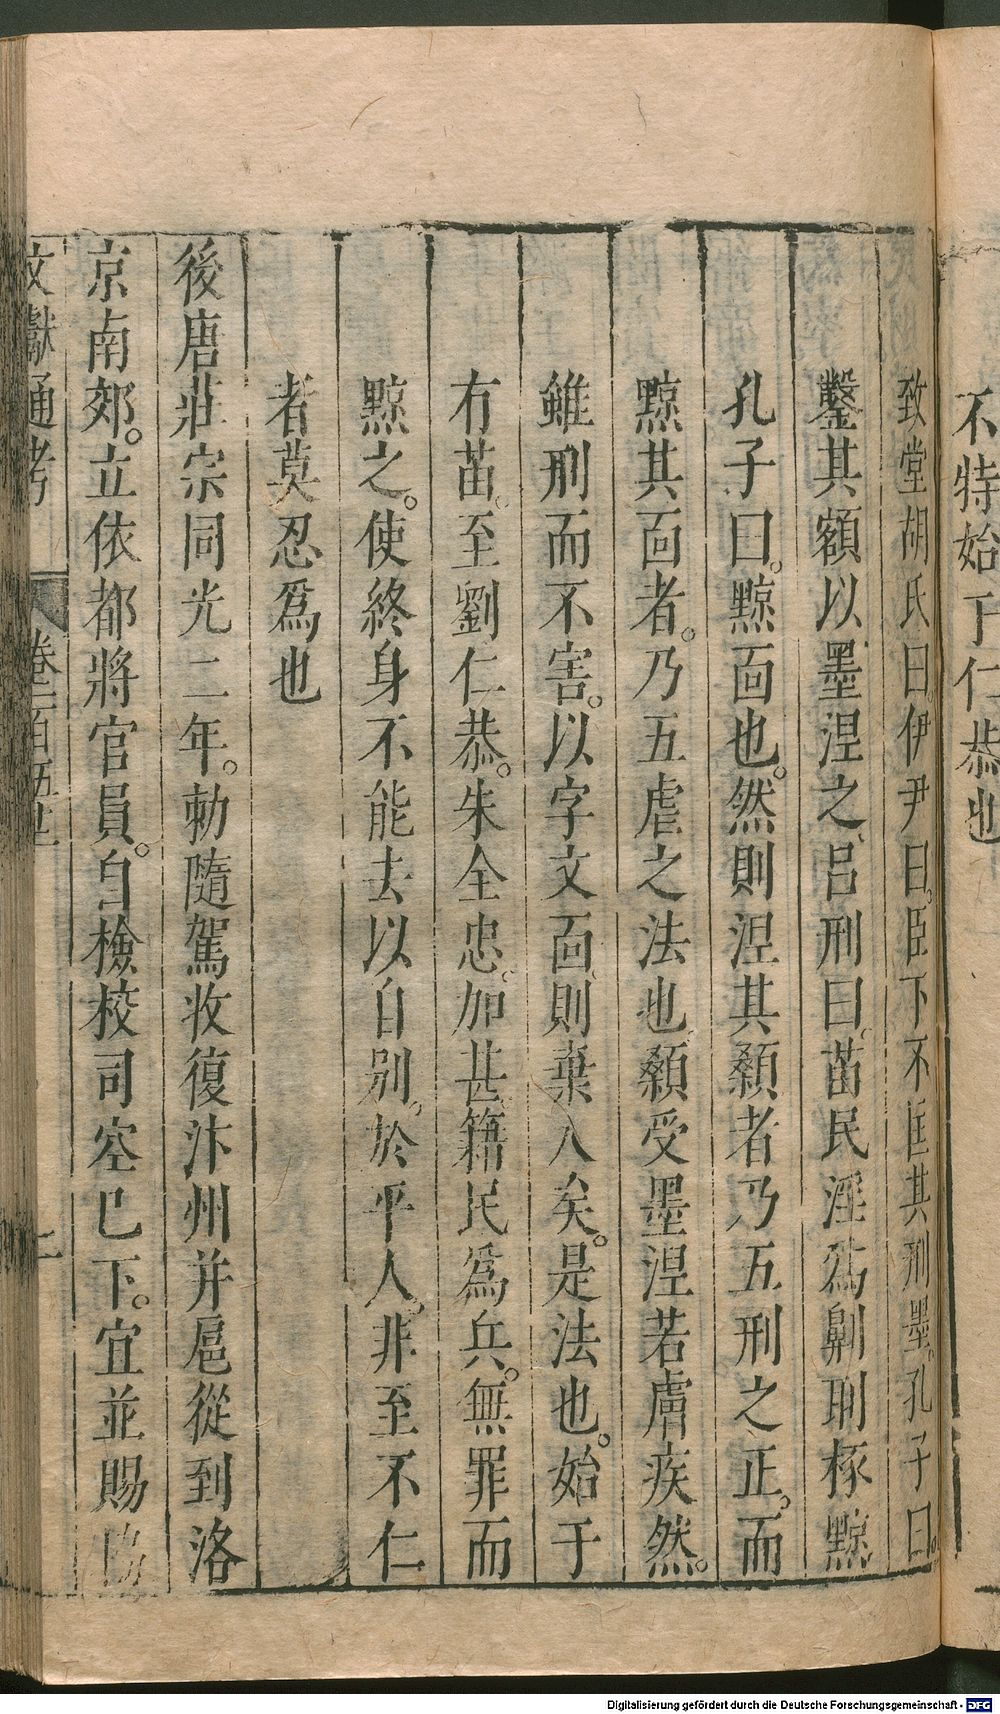 不特始于仁恭也
致堂胡氏曰伊尹曰。臣下不匡其刑墨。孔子曰。
鑿其額以墨涅之、呂刑曰。苗民淫爲劓刵椓黥
孔子曰。黥靣也。然則涅其顙者乃五刑之正。而
黥其靣者。乃五虐之法也、顙受墨涅若膚疾然。
雖刑而不害。以字文靣、則棄人矣。是法也。始于
有苗。至劉仁恭。朱全忠、加甚、籍民爲兵。無罪而
黥之。使終身不能去以自别、於平人。非至不仁
者莫忍爲也
後唐莊宗同光二年。勅隨駕收復汴州并扈從到洛
京南郊。立依都將官員。自檢校司空巳下。宜並賜
文獻通考 卷一百五十 二
Digitalisierung gefördert durch die Deutsche Forschungsgemeinschaft - DFG